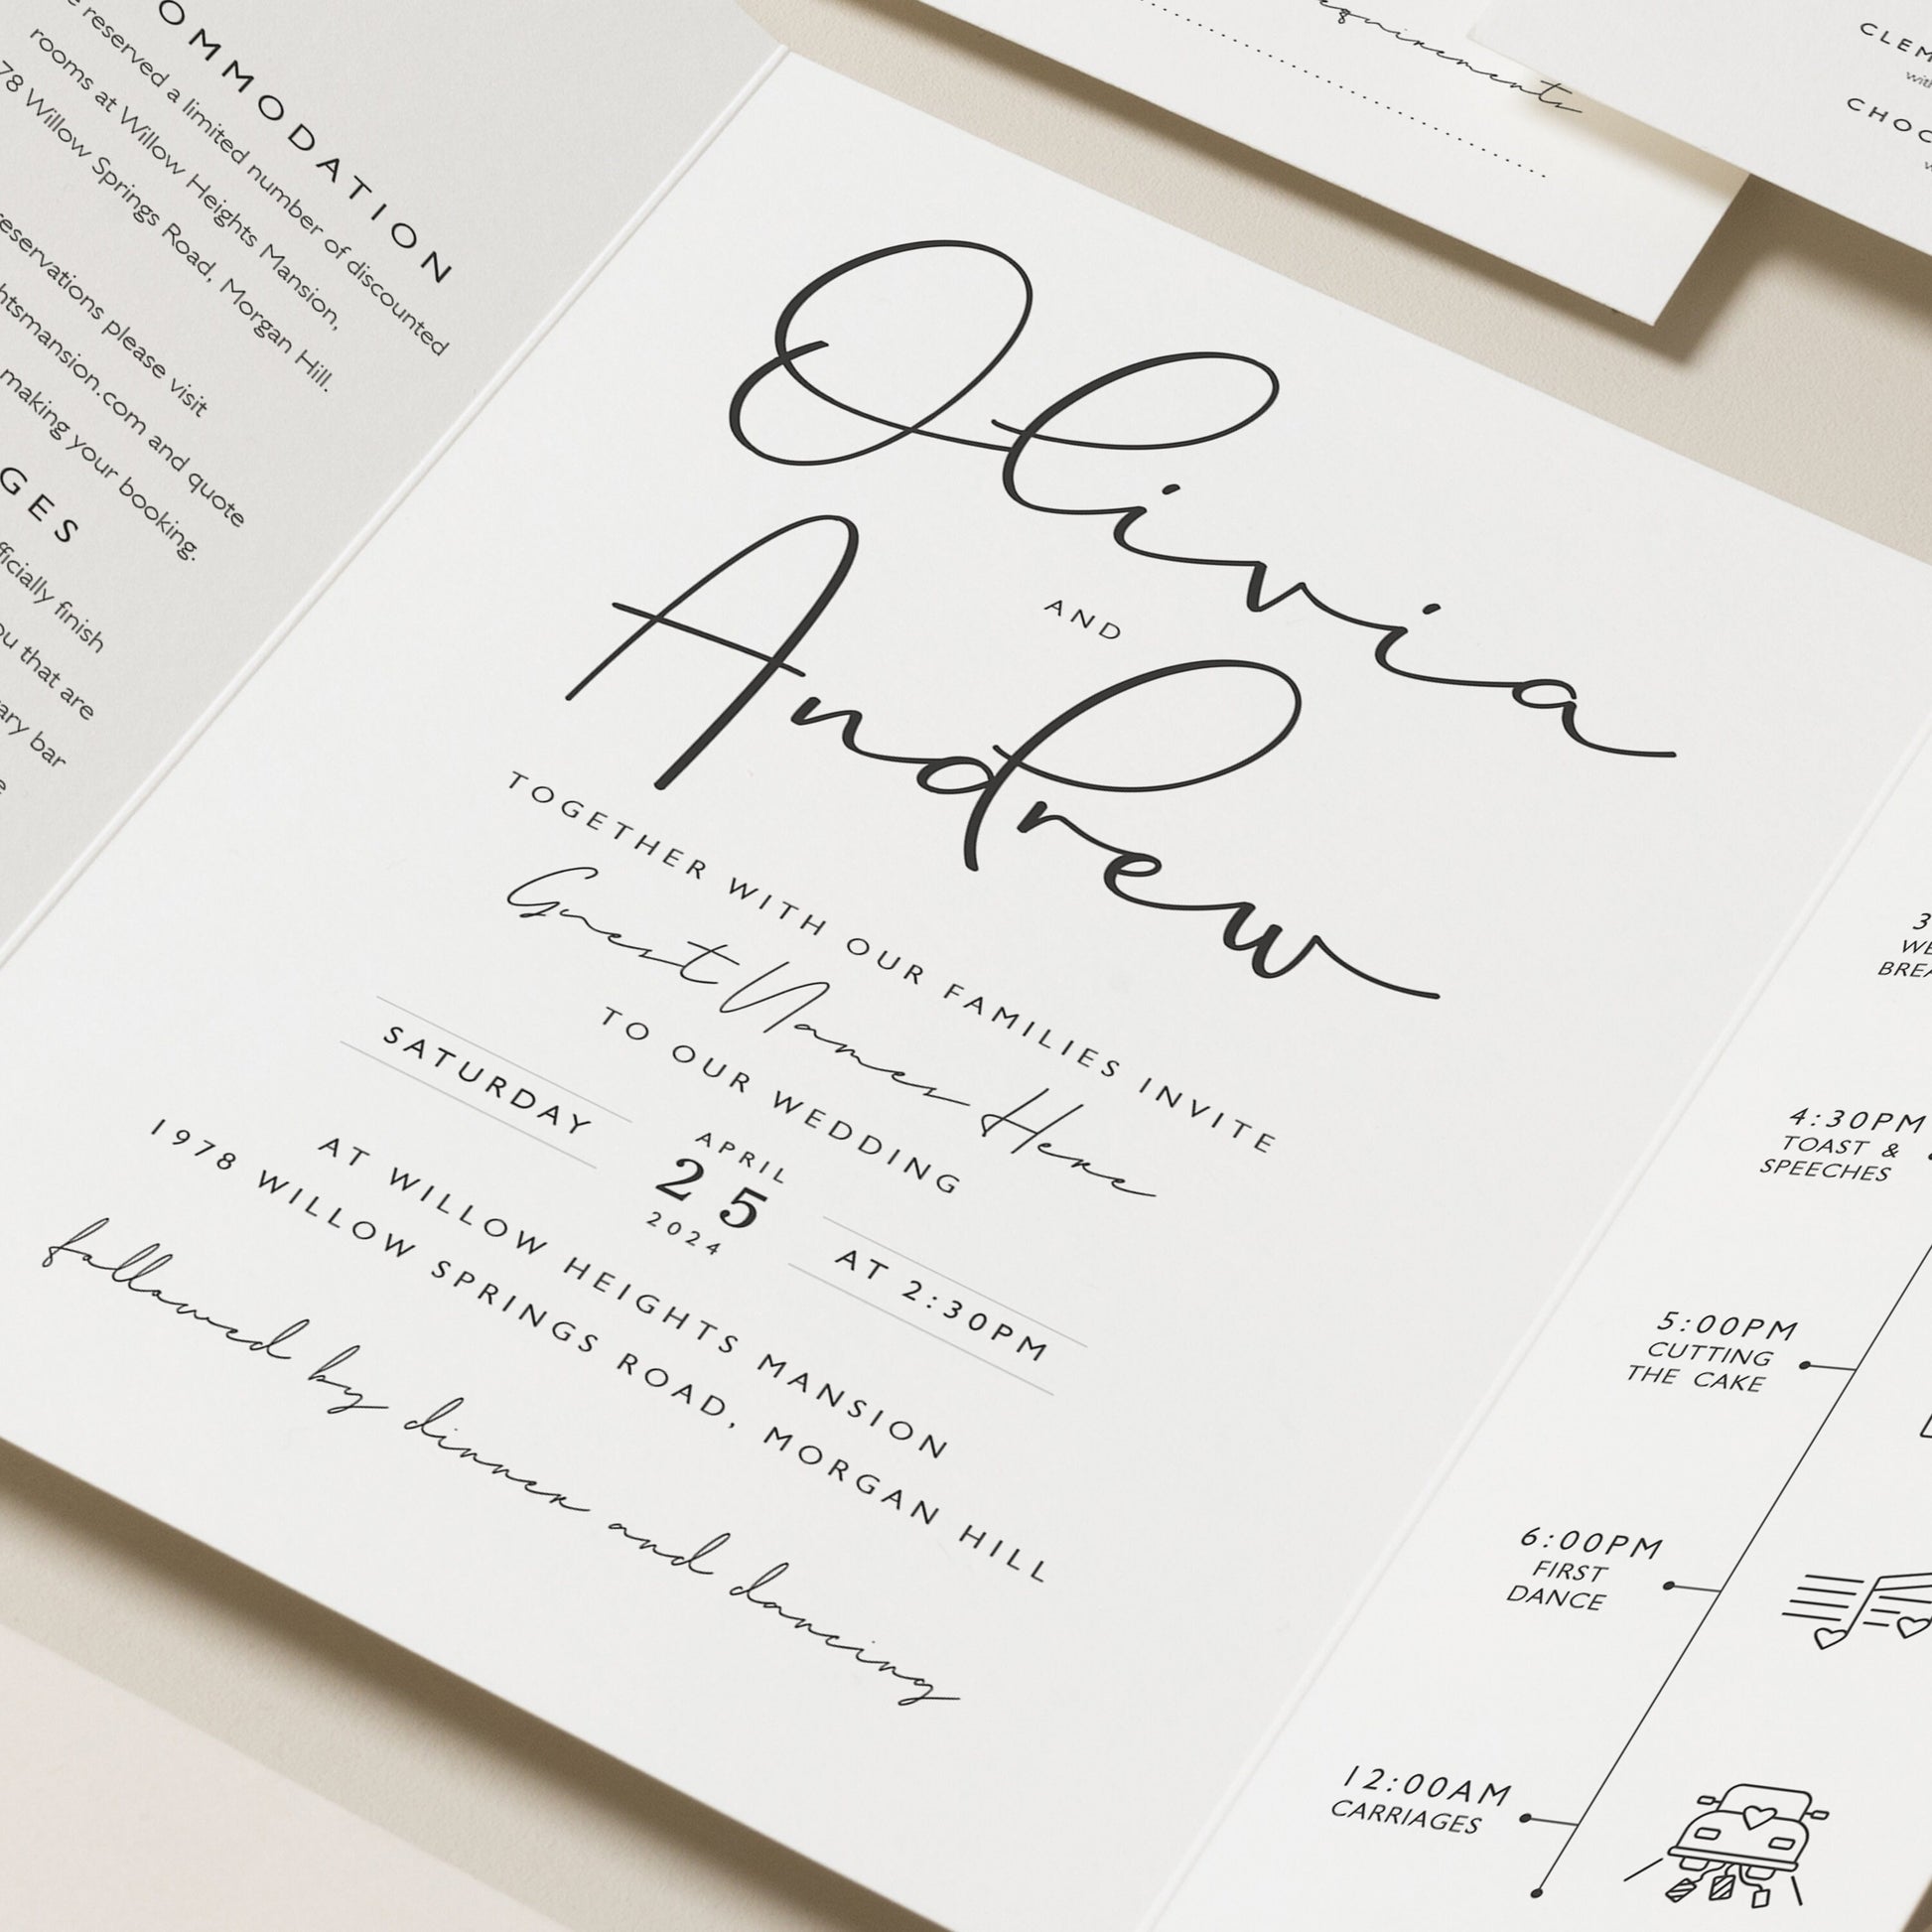 OMMODATION
reserved a limited number of discounted
rooms at Willow Heights Mansion,
78 Willow Springs Road, Morgan Hill.
please visit
and quote
making your booking.
GES
finish
that are
bar
CLEM
CHOC
Olivia
AND
Andrew
TOGETHER WITH OUR FAMILIES INVITE
Guest Names Here
TO OUR WEDDING
SATURDAY
APRIL
25
2024
AT 2:30PM
AT WILLOW HEIGHTS MANSION
1978 WILLOW SPRINGS ROAD, MORGAN HILL
followed by dinner and dancing
4:30PM
TOAST &
SPEECHES
5:00PM
CUTTING
THE CAKE
6:00PM
FIRST
DANCE
12:00AM
CARRIAGES